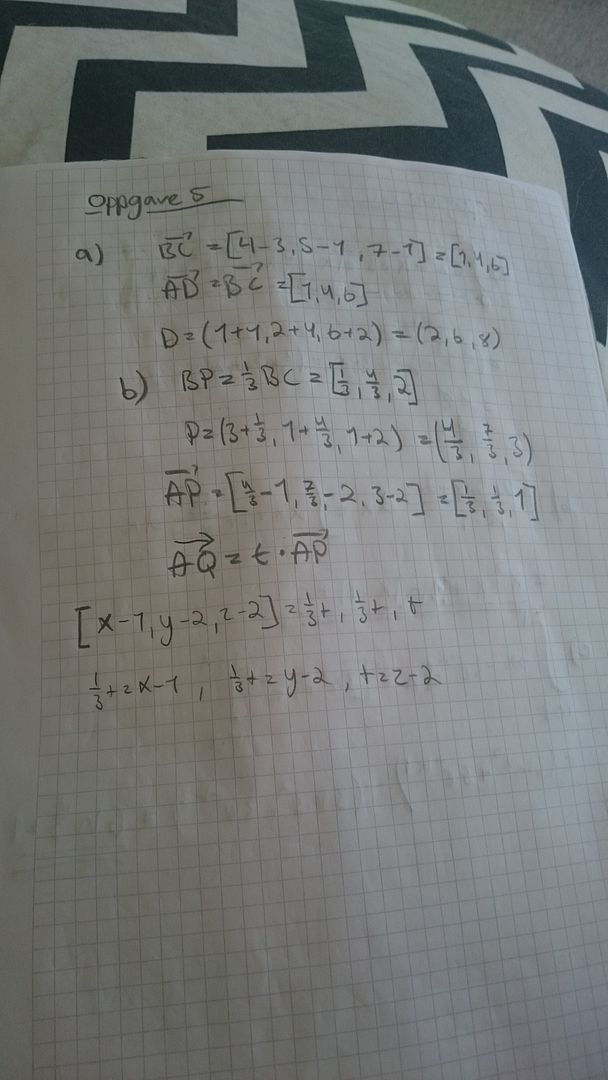 Oppgave 5
a) $\overrightarrow{BC} = [4-3, 5-1, 7-1] = [1,4,6]$
$\overrightarrow{AD} = \overrightarrow{BC} = [1,4,6]$
$D = (1+1, 2+4, 6+2) = (2,6,8)$
b) $BP = \frac{1}{3}BC = [\frac{1}{3}, \frac{4}{3}, 2]$
$P = (3+\frac{1}{3}, 1+\frac{4}{3}, 1+2) = (\frac{4}{3}, \frac{7}{3}, 3)$
$\overrightarrow{AP} = [\frac{4}{3}-1, \frac{7}{3}-2, 3-2] = [\frac{1}{3}, \frac{1}{3}, 1]$
$\overrightarrow{AQ} = t \cdot \overrightarrow{AP}$
$[x-1, y-2, z-2] = \frac{1}{3}t, \frac{1}{3}t, t$
$\frac{1}{3}t = x-1, \frac{1}{3}t = y-2, t = z-2$